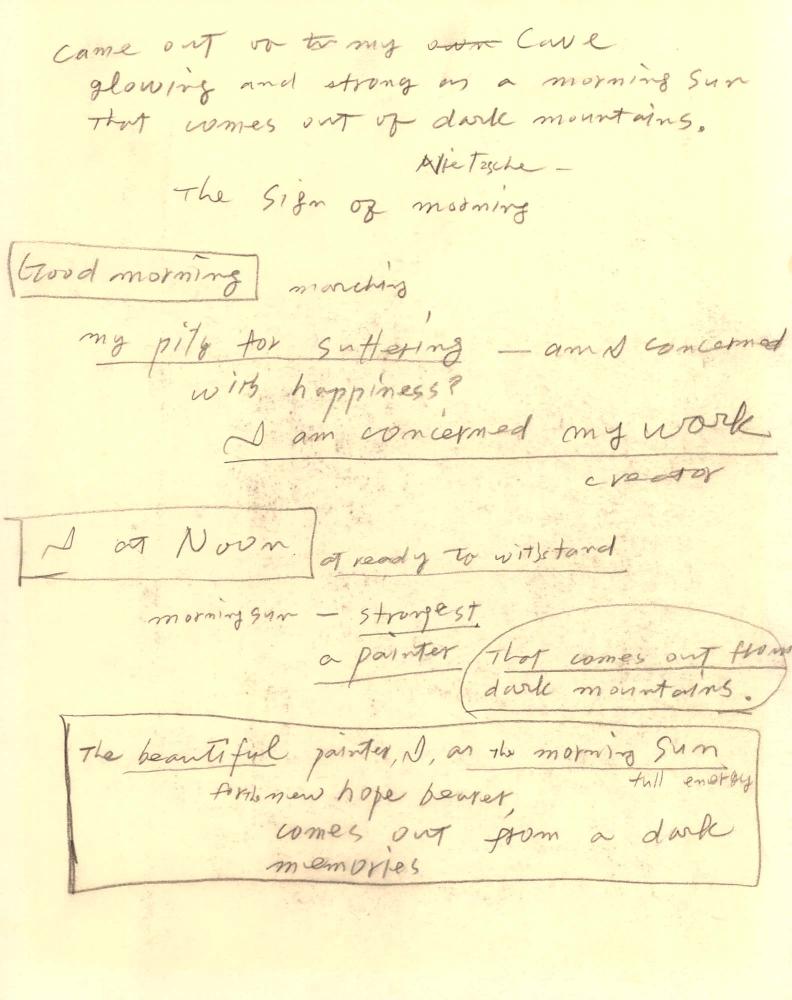 Came out of to my own Cave
glowing and strong as a morning Sun
That comes out of dark mountains.
Nietzsche —
The Sign of morning
Good morning marching
my pity for suffering — am I concerned
with happiness?
I am concerned my work
creator
I at Noon at ready to withstand
morning sun — strongest
a painter That comes out from
dark mountains.
The beautiful painter, I, as the morning Sun
full energy
new hope bearer,
comes out from a dark
memories